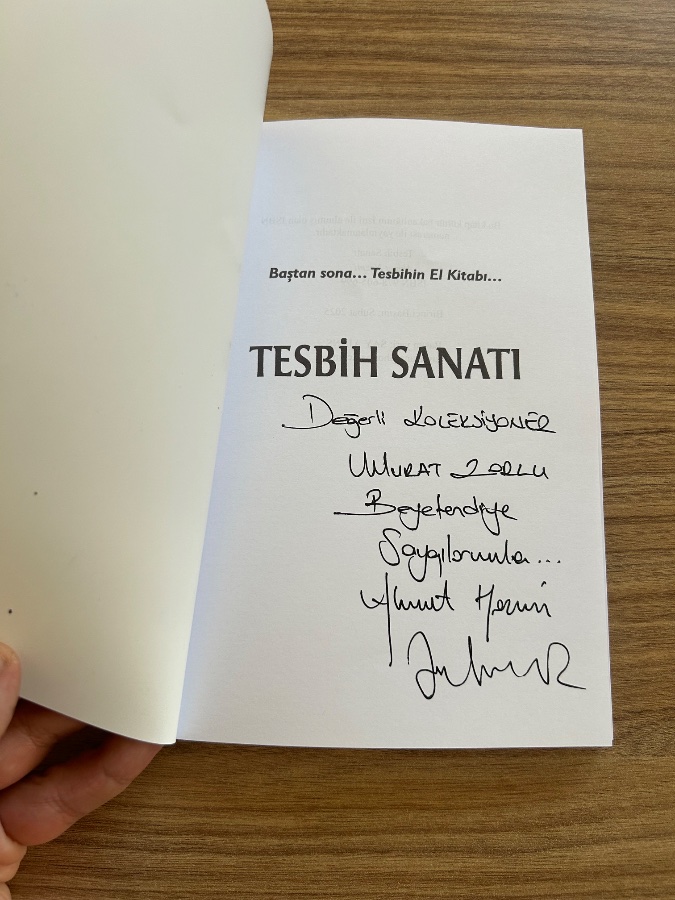 Baştan sona... Tesbihin El Kitabı...
TESBİH SANATI
Değerli KOLEKSİYONER
MURAT ZORLU
Beyefendiye
Saygılarımla...
Ahmet